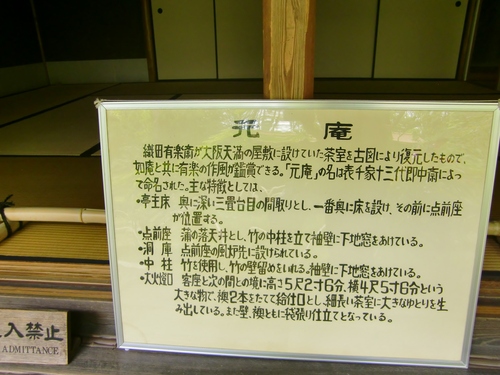 元庵
織田有楽斎が大阪天満の屋敷に設けていた茶室を古図により復元したもので、
如庵と共に有楽の作風が鑑賞できる。「元庵」の名は表千家十三代即中斎によっ
て命名された。主な特徴としては、
・亭主床 奥に深い三畳台目の間取りとし、一番奥に床を設け、その前に点前座
が位置する。
・点前座 蒲の落天井とし、竹の中柱を立て袖壁に下地窓をあけている。
・洞庫 点前座の風炉先に設けられている。
・中柱 竹を使用し、竹の壁留めをいれる。袖壁に下地窓をあけている。
・大火燈口 客座と次の間との境に高さ5尺2寸6分、横4尺5寸6分という
大きな物で、襖2本をたてて給仕口とし、細長い茶室に大きなゆとりを生
み出している。また壁、襖ともに袋張り仕立てとなっている。
入禁止
ADMITTANCE